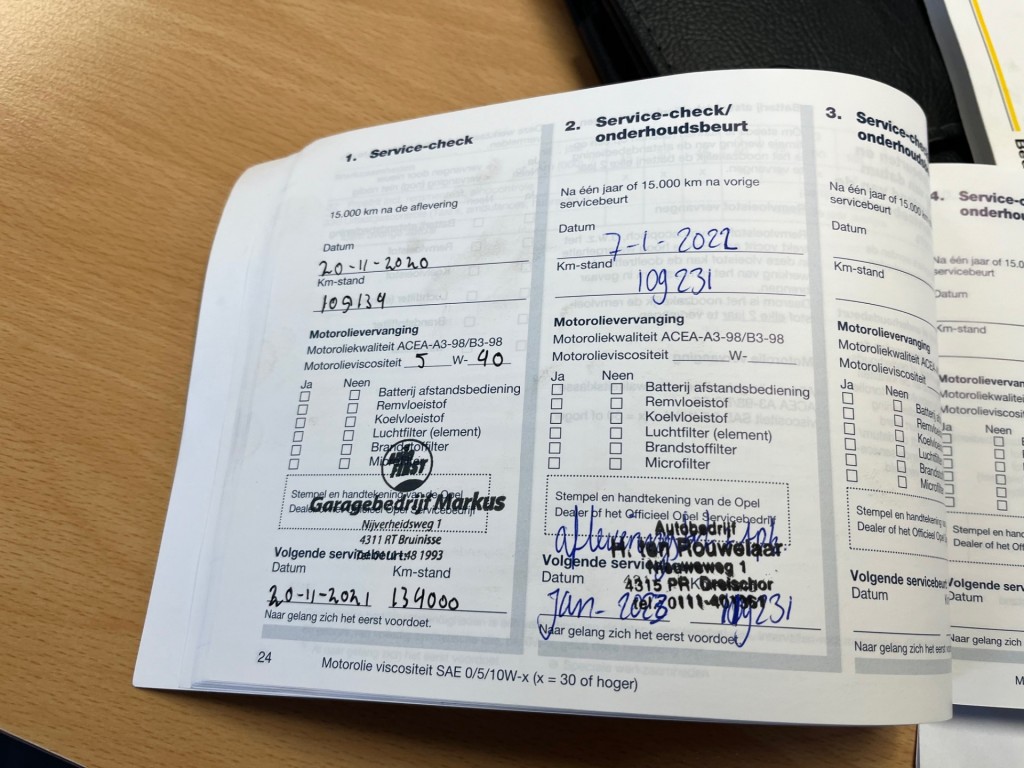 1. Service-check
15.000 km na de aflevering
Datum
20-11-2020
Km-stand
109134
Motorolievervanging
Motoroliekwaliteit ACEA-A3-98/B3-98
Motorolieviscositeit 5 W- 40
Ja Neen
Batterij afstandsbediening
Remvloeistof
Koelvloeistof
Luchtfilter (element)
Brandstoffilter
FIRST
Stempel en handtekening van de Opel
Garagebedrijf Markus
Dealer of het Officieel Opel Servicebedrijf
Nijverheidsweg 1
4311 RT Bruinisse
Volgende servicebeurt:
Datum Km-stand
20-11-2021 134000
Naar gelang zich het eerst voordoet.
24
Motorolie viscositeit SAE 0/5/10W-x (x = 30 of hoger)
2. Service-check/
onderhoudsbeurt
Na één jaar of 15.000 km na vorige
servicebeurt
Datum
7-1-2022
Km-stand
109231
Motorolievervanging
Motoroliekwaliteit ACEA-A3-98/B3-98
Motorolieviscositeit W-
Ja Neen
Batterij afstandsbediening
Remvloeistof
Koelvloeistof
Luchtfilter (element)
Brandstoffilter
Microfilter
Stempel en handtekening van de Opel
Dealer of het Officieel Opel Servicebedrijf
Autobedrijf
H. ten Rouwelaar
Nieuweweg 1
4315 PR Dreischor
Volgende servicebeurt
Datum
Jan- 2023 109231
Naar gelang zich het eerst voordoet.
3. Service-check
onderhouds
Na één jaar of 15.000 km
servicebeurt
Datum
Km-stand
Motorolievervanging
Motoroliekwaliteit ACEA
Motorolieviscositeit
Ja Neen
Stempel en handtekening
Dealer of het Officieel
Volgende servicebeurt
Datum
Naar gelang zich het eerst
4. Service-c
onderho
Na één jaar of 15.0
servicebeurt
Datum
Km-stand
Motorolievervan
Motoroliekwaliteit
Motorolieviscosi
Ja Neen
Stempel en hand
Dealer of het Offi
Volgende service
Datum
Naar gelang zich